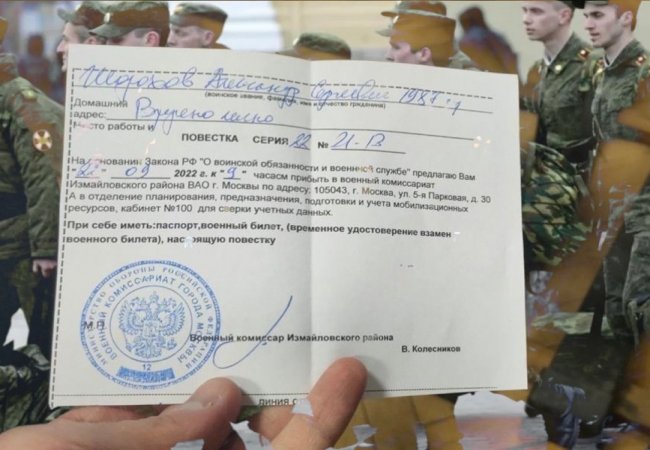 Александр Сергеевич 1987 г
(воинское звание, фамилия, имя и отчество гражданина)
Домашний
адрес: Вручено лично
Место работы и
ПОВЕСТКА СЕРИЯ 22 № 21-В
На основании Закона РФ "О воинской обязанности и военной службе" предлагаю Вам
" 22 " 09 2022 г. к " 9 " часасм прибыть в военный комиссариат
Измайловского района ВАО г. Москвы по адресу, 105043, г. Москва, ул. 5-я Парковая, д. 30
А в отделение планирования, предназначения, подготовки и учета мобилизационных
ресурсов, кабинет №100 для сверки учетных данных.
При себе иметь:паспорт,военный билет, (временное удостоверение взамен
военного билета), настоящую повестку
МИНИСТЕРСТВО ОБОРОНЫ РОССИЙСКОЙ ФЕДЕРАЦИИ
ВОЕННЫЙ КОМИССАРИАТ ГОРОДА МОСКВЫ
12
М.П.
Военный комиссар Измайловского района
В. Колесников
ЛИНИЯ